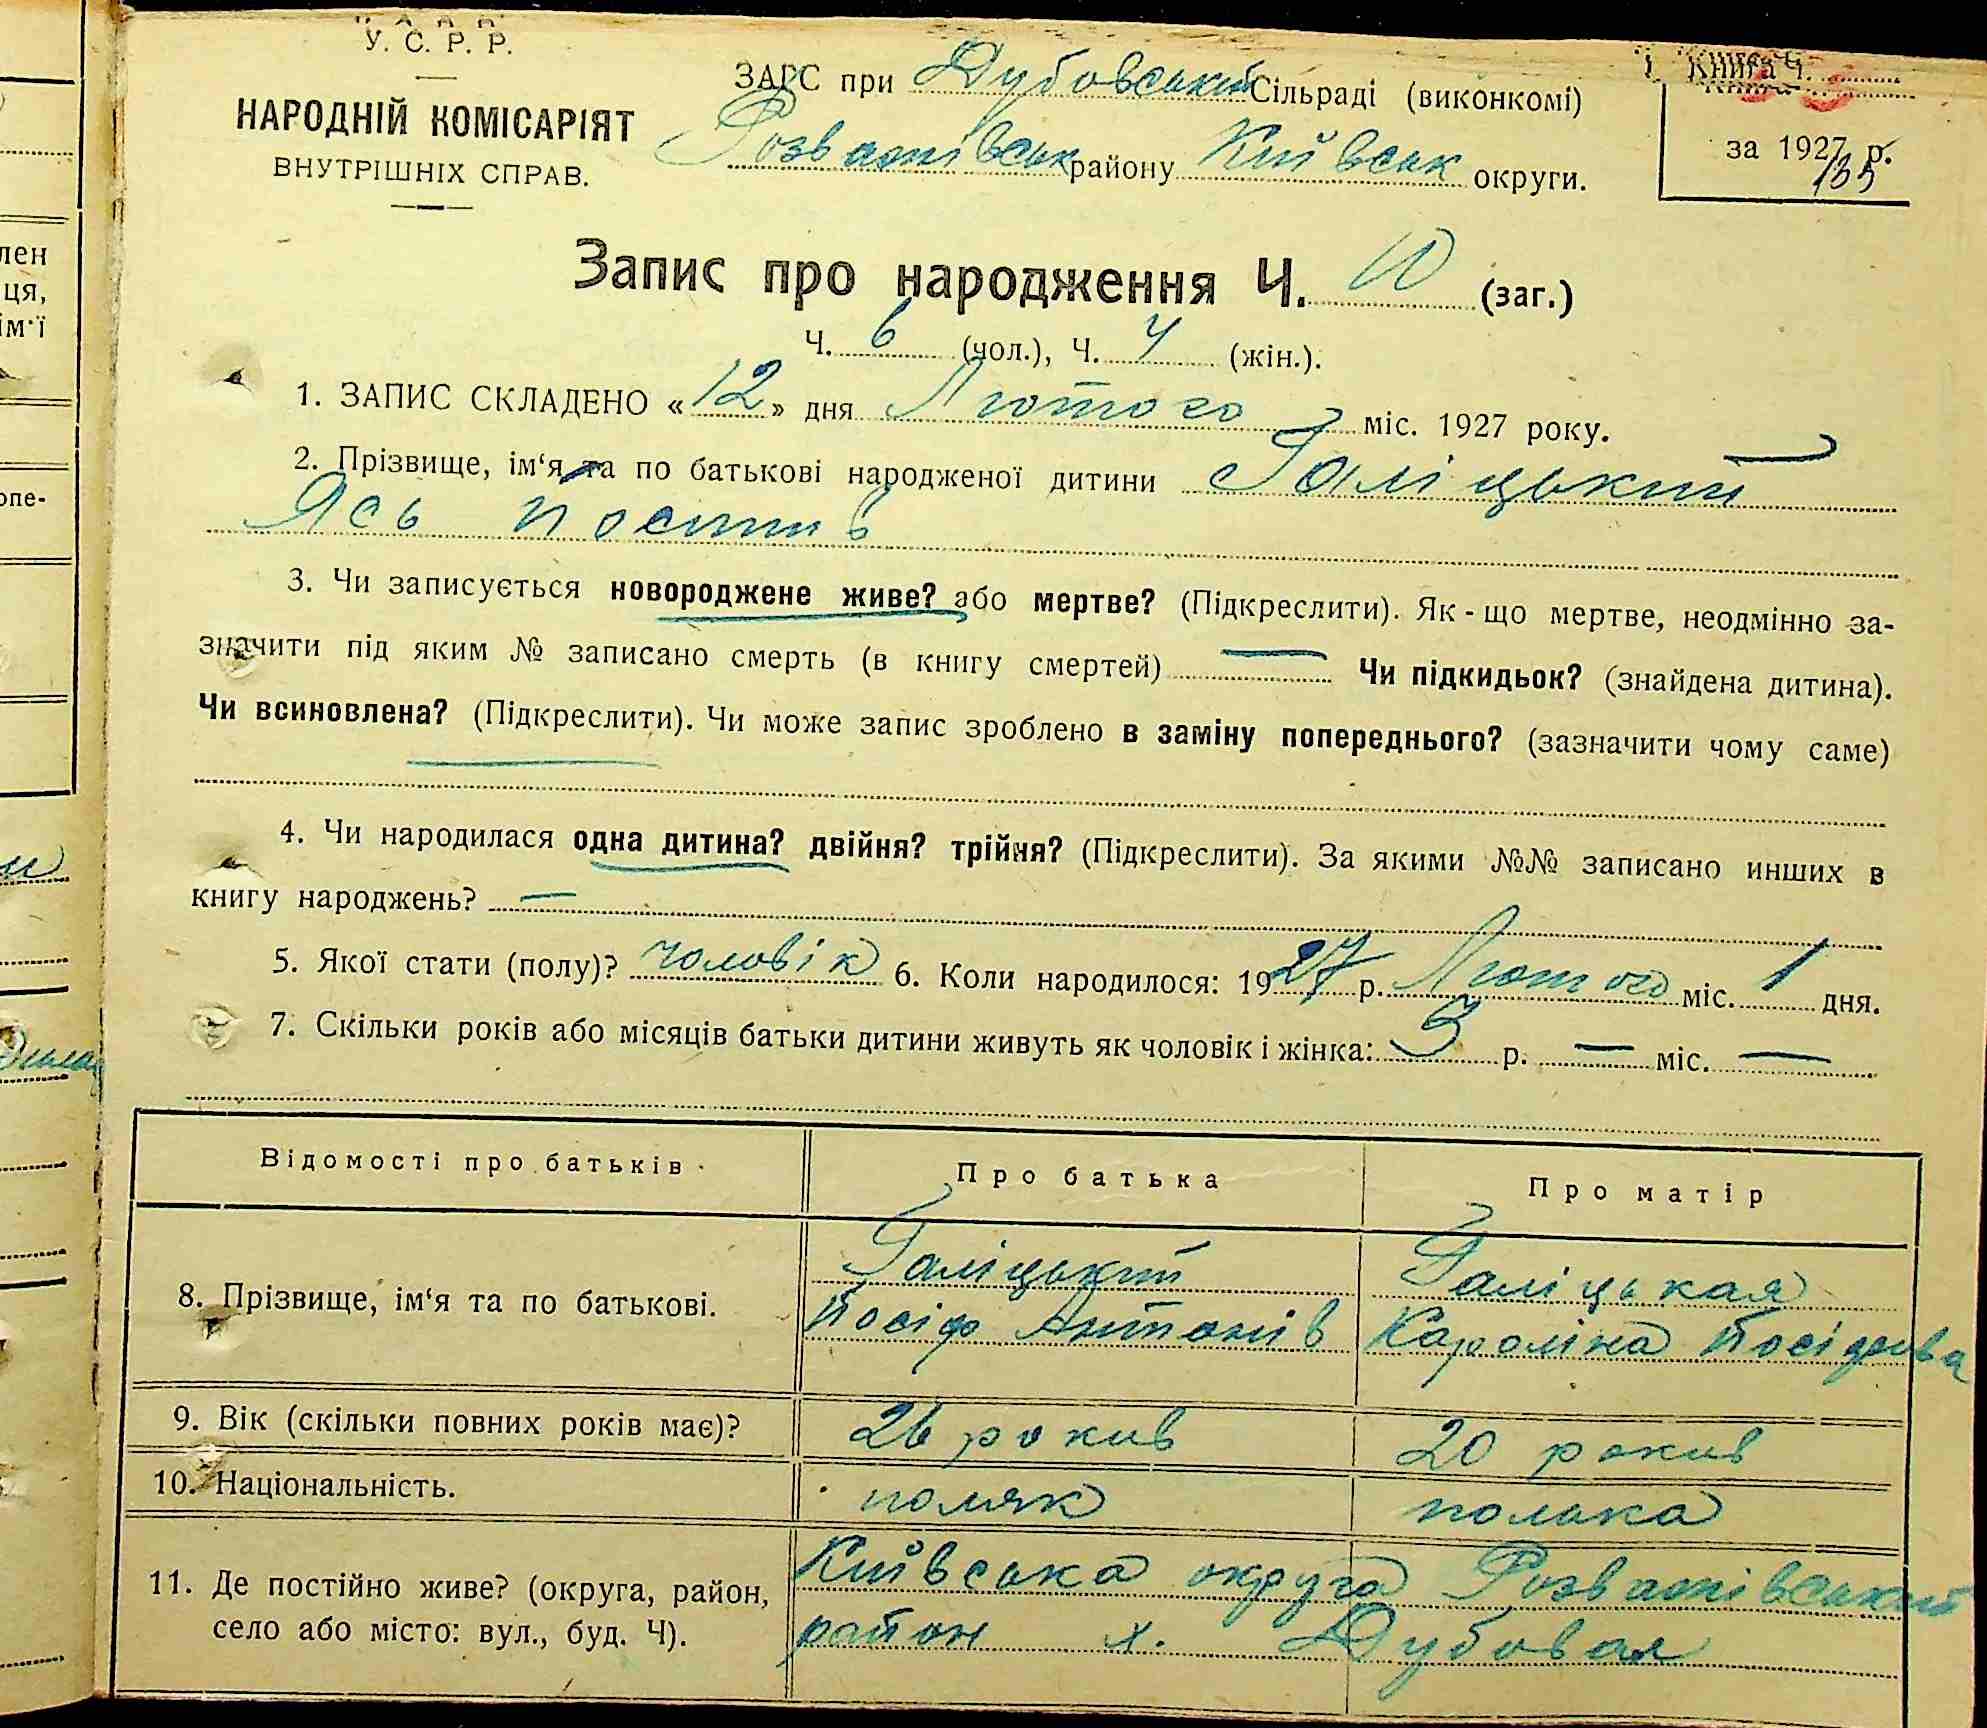 У. С. Р. Р.
НАРОДНІЙ КОМІСАРІЯТ
ВНУТРІШНІХ СПРАВ.
ЗАГС при Дубовський Сільраді (виконкомі)
Розважівськ району Київськ округи.
Книга Ч.
за 1927 р.
135
Запис про народження Ч. 10 (заг.)
Ч. 6 (чол.), Ч. 4 (жін.).
1. ЗАПИС СКЛАДЕНО «12» дня Лютого міс. 1927 року.
2. Прізвище, ім‘я та по батькові народженої дитини Галіцький
Ясь Йосипів
3. Чи записується новороджене живе? або мертве? (Підкреслити). Як-що мертве, неодмінно за-
значити під яким № записано смерть (в книгу смертей) — Чи підкидьок? (знайдена дитина).
Чи всиновлена? (Підкреслити). Чи може запис зроблено в заміну попереднього? (зазначити чому саме)
4. Чи народилася одна дитина? двійня? трійня? (Підкреслити). За якими №№ записано инших в
книгу народжень? —
5. Якої стати (полу)? чоловік 6. Коли народилося: 1927 р. Лютого міс. 1 дня.
7. Скільки років або місяців батьки дитини живуть як чоловік і жінка: 3 р. — міс. —
Відомості про батьків Про батька Про матір
8. Прізвище, ім‘я та по батькові. Галіцький Галіцькая
Йосіф Антонів Кароліна Йосіфова
9. Вік (скільки повних років має)? 26 рокив 20 рокив
10. Національність. поляк полька
11. Де постійно живе? (округа, район, Київська округа Розважівський
село або місто: вул., буд. Ч). район х. Дубовая
лен
ця,
ім‘ї
опе-